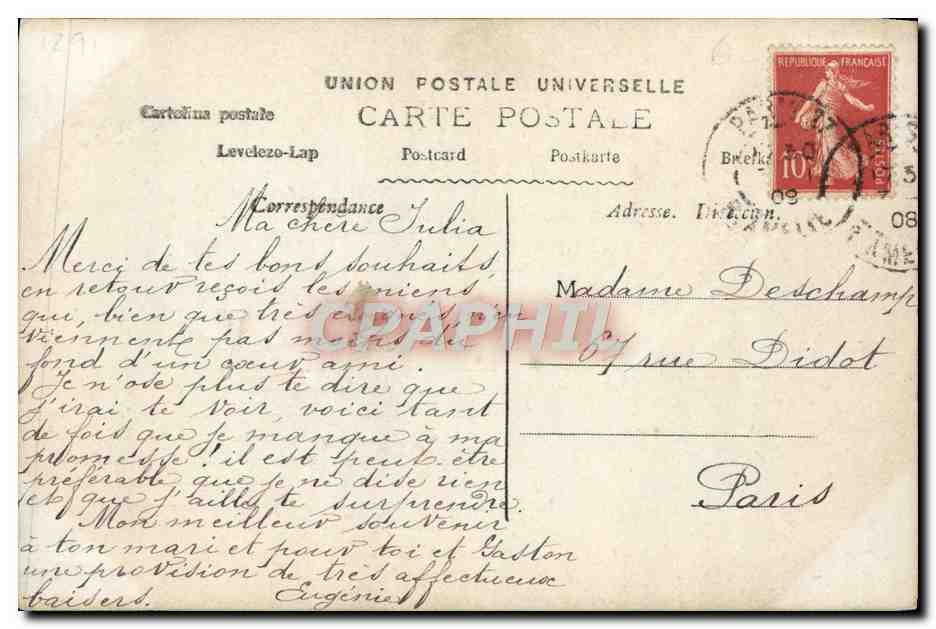 1291
6
UNION POSTALE UNIVERSELLE
Cartolina postale
CARTE POSTALE
Levelezo-Lap
Postcard
Postkarte
REPUBLIQUE FRANÇAISE
10
POSTES
09
08
Correspondance
Adresse.
Ma chère Julia
Merci de tes bons souhaits,
en retour reçois les miens
qui, bien que très n'en
viennent pas moins du
fond d'un cœur ami.
Je n'ose plus te dire que
j'irai te voir, voici tant
de fois que je manque à ma
promesse! il est peut-être
préférable que je ne dise rien
et que j'aille te surprendre.
Mon meilleur souvenir
à ton mari et pour toi et Gaston
une provision de très affectueux
baisers. Eugénie
Madame Deschamp
67 rue Didot
Paris
CPAPHIL